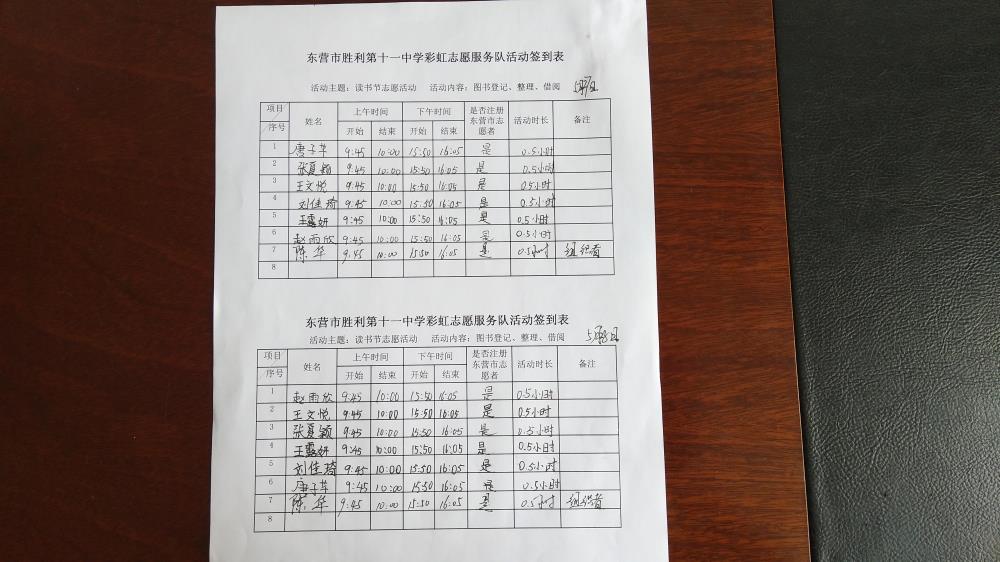 东营市胜利第十一中学彩虹志愿服务队活动签到表
活动主题：读书节志愿活动 活动内容：图书登记、整理、借阅 5月7日
项目 序号 姓名 上午时间 下午时间 是否注册东营市志愿者 活动时长 备注
开始 结束 开始 结束
1 唐子苹 9:45 10:00 15:50 16:05 是 0.5小时
2 张夏颖 9:45 10:00 15:50 16:05 是 0.5小时
3 王文悦 9:45 10:00 15:50 16:05 是 0.5小时
4 刘佳琦 9:45 10:00 15:50 16:05 是 0.5小时
5 王露妍 9:45 10:00 15:50 16:05 是 0.5小时
6 赵雨欣 9:45 10:00 15:50 16:05 是 0.5小时
7 陈华 9:45 10:00 15:50 16:05 是 0.5小时 组织者
8
东营市胜利第十一中学彩虹志愿服务队活动签到表
活动主题：读书节志愿活动 活动内容：图书登记、整理、借阅 5月8日
项目 序号 姓名 上午时间 下午时间 是否注册东营市志愿者 活动时长 备注
开始 结束 开始 结束
1 赵雨欣 9:45 10:00 15:50 16:05 是 0.5小时
2 王文悦 9:45 10:00 15:50 16:05 是 0.5小时
3 张夏颖 9:45 10:00 15:50 16:05 是 0.5小时
4 王露妍 9:45 10:00 15:50 16:05 是 0.5小时
5 刘佳琦 9:45 10:00 15:50 16:05 是 0.5小时
6 唐子苹 9:45 10:00 15:50 16:05 是 0.5小时
7 陈华 9:45 10:00 15:50 16:05 是 0.5小时 组织者
8